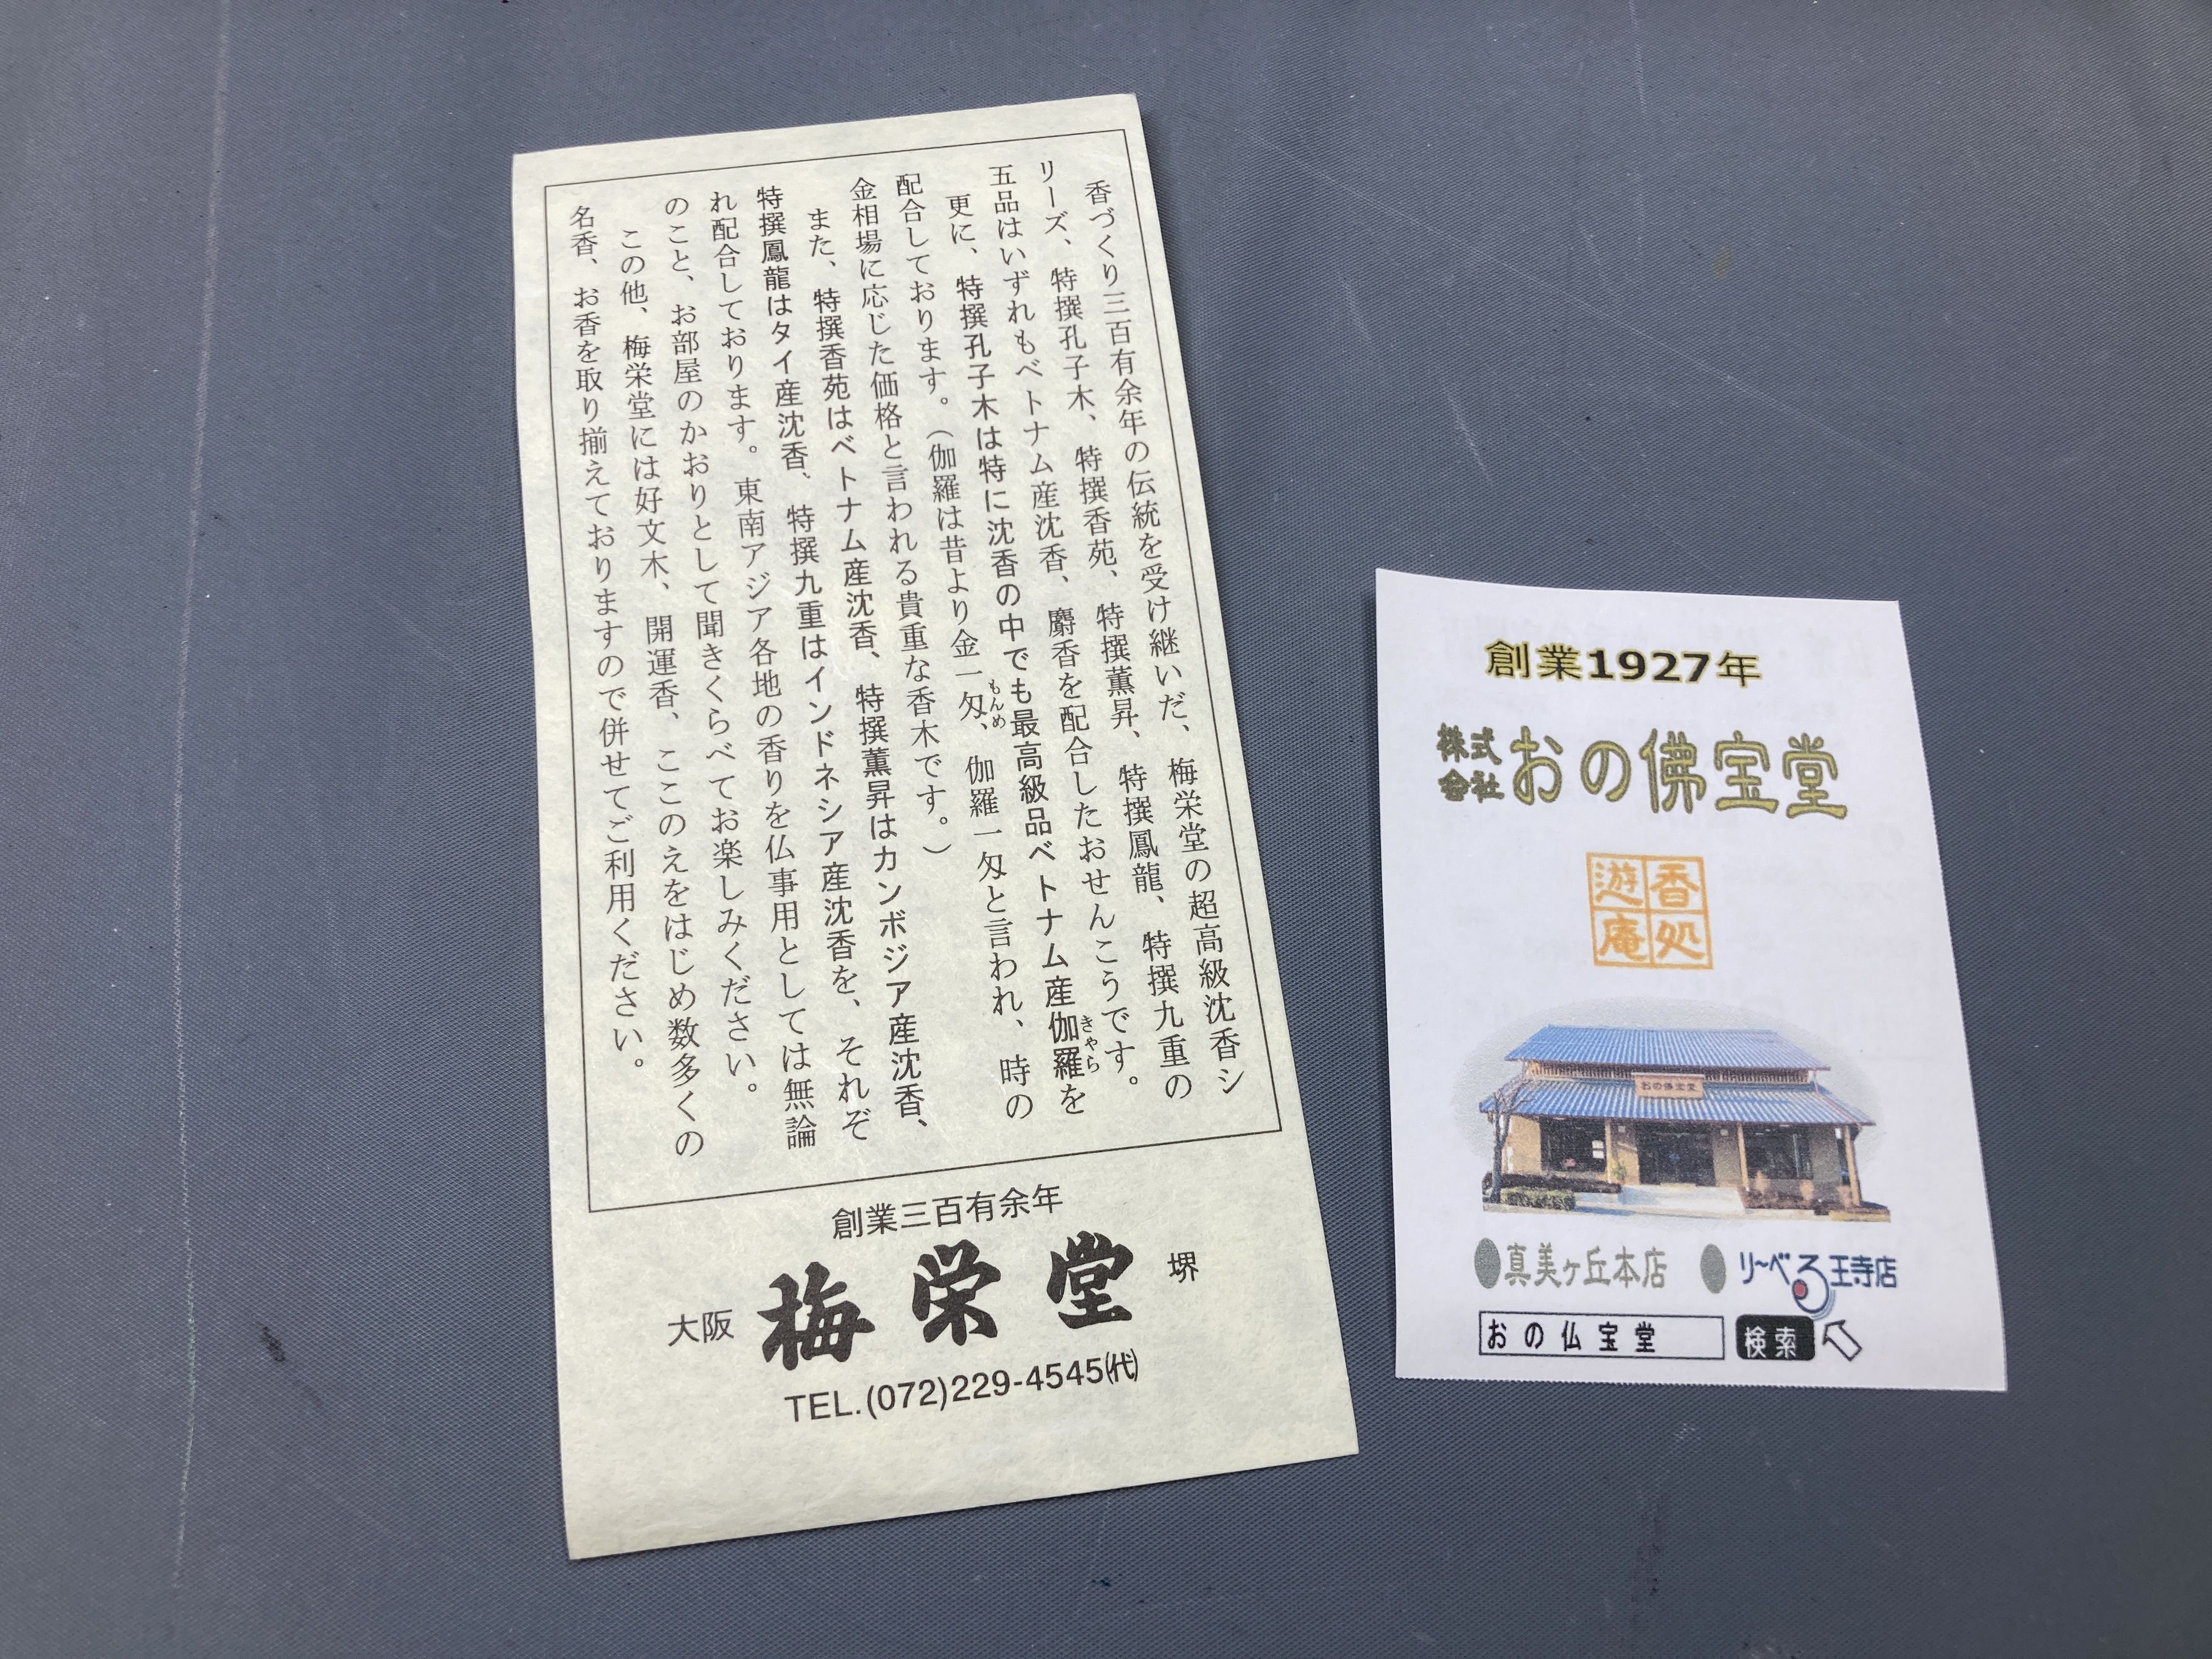 香づくり三百有余年の伝統を受け継いだ、梅栄堂の超高級沈香シ
リーズ、特撰孔子木、特撰香苑、特撰薫昇、特撰鳳龍、特撰九重の
五品はいずれもベトナム産沈香、麝香を配合したおせんこうです。
更に、特撰孔子木は特に沈香の中でも最高級品ベトナム産伽羅を
きゃら
配合しております。（伽羅は昔より金一匁、伽羅一匁と言われ、時の
もんめ
金相場に応じた価格と言われる貴重な香木です。）
また、特撰香苑はベトナム産沈香、特撰薫昇はカンボジア産沈香、
特撰鳳龍はタイ産沈香、特撰九重はインドネシア産沈香を、それぞ
れ配合しております。東南アジア各地の香りを仏事用としては無論
のこと、お部屋のかおりとして聞きくらべてお楽しみください。
この他、梅栄堂には好文木、開運香、ここのえをはじめ数多くの
名香、お香を取り揃えておりますので併せてご利用ください。
創業三百有余年
大阪 梅栄堂 堺
TEL.(072)229-4545㈹
創業1927年
株式会社おの佛宝堂
香処
遊庵
おの佛宝堂
真美ヶ丘本店 リーベる王寺店
おの仏宝堂 検索